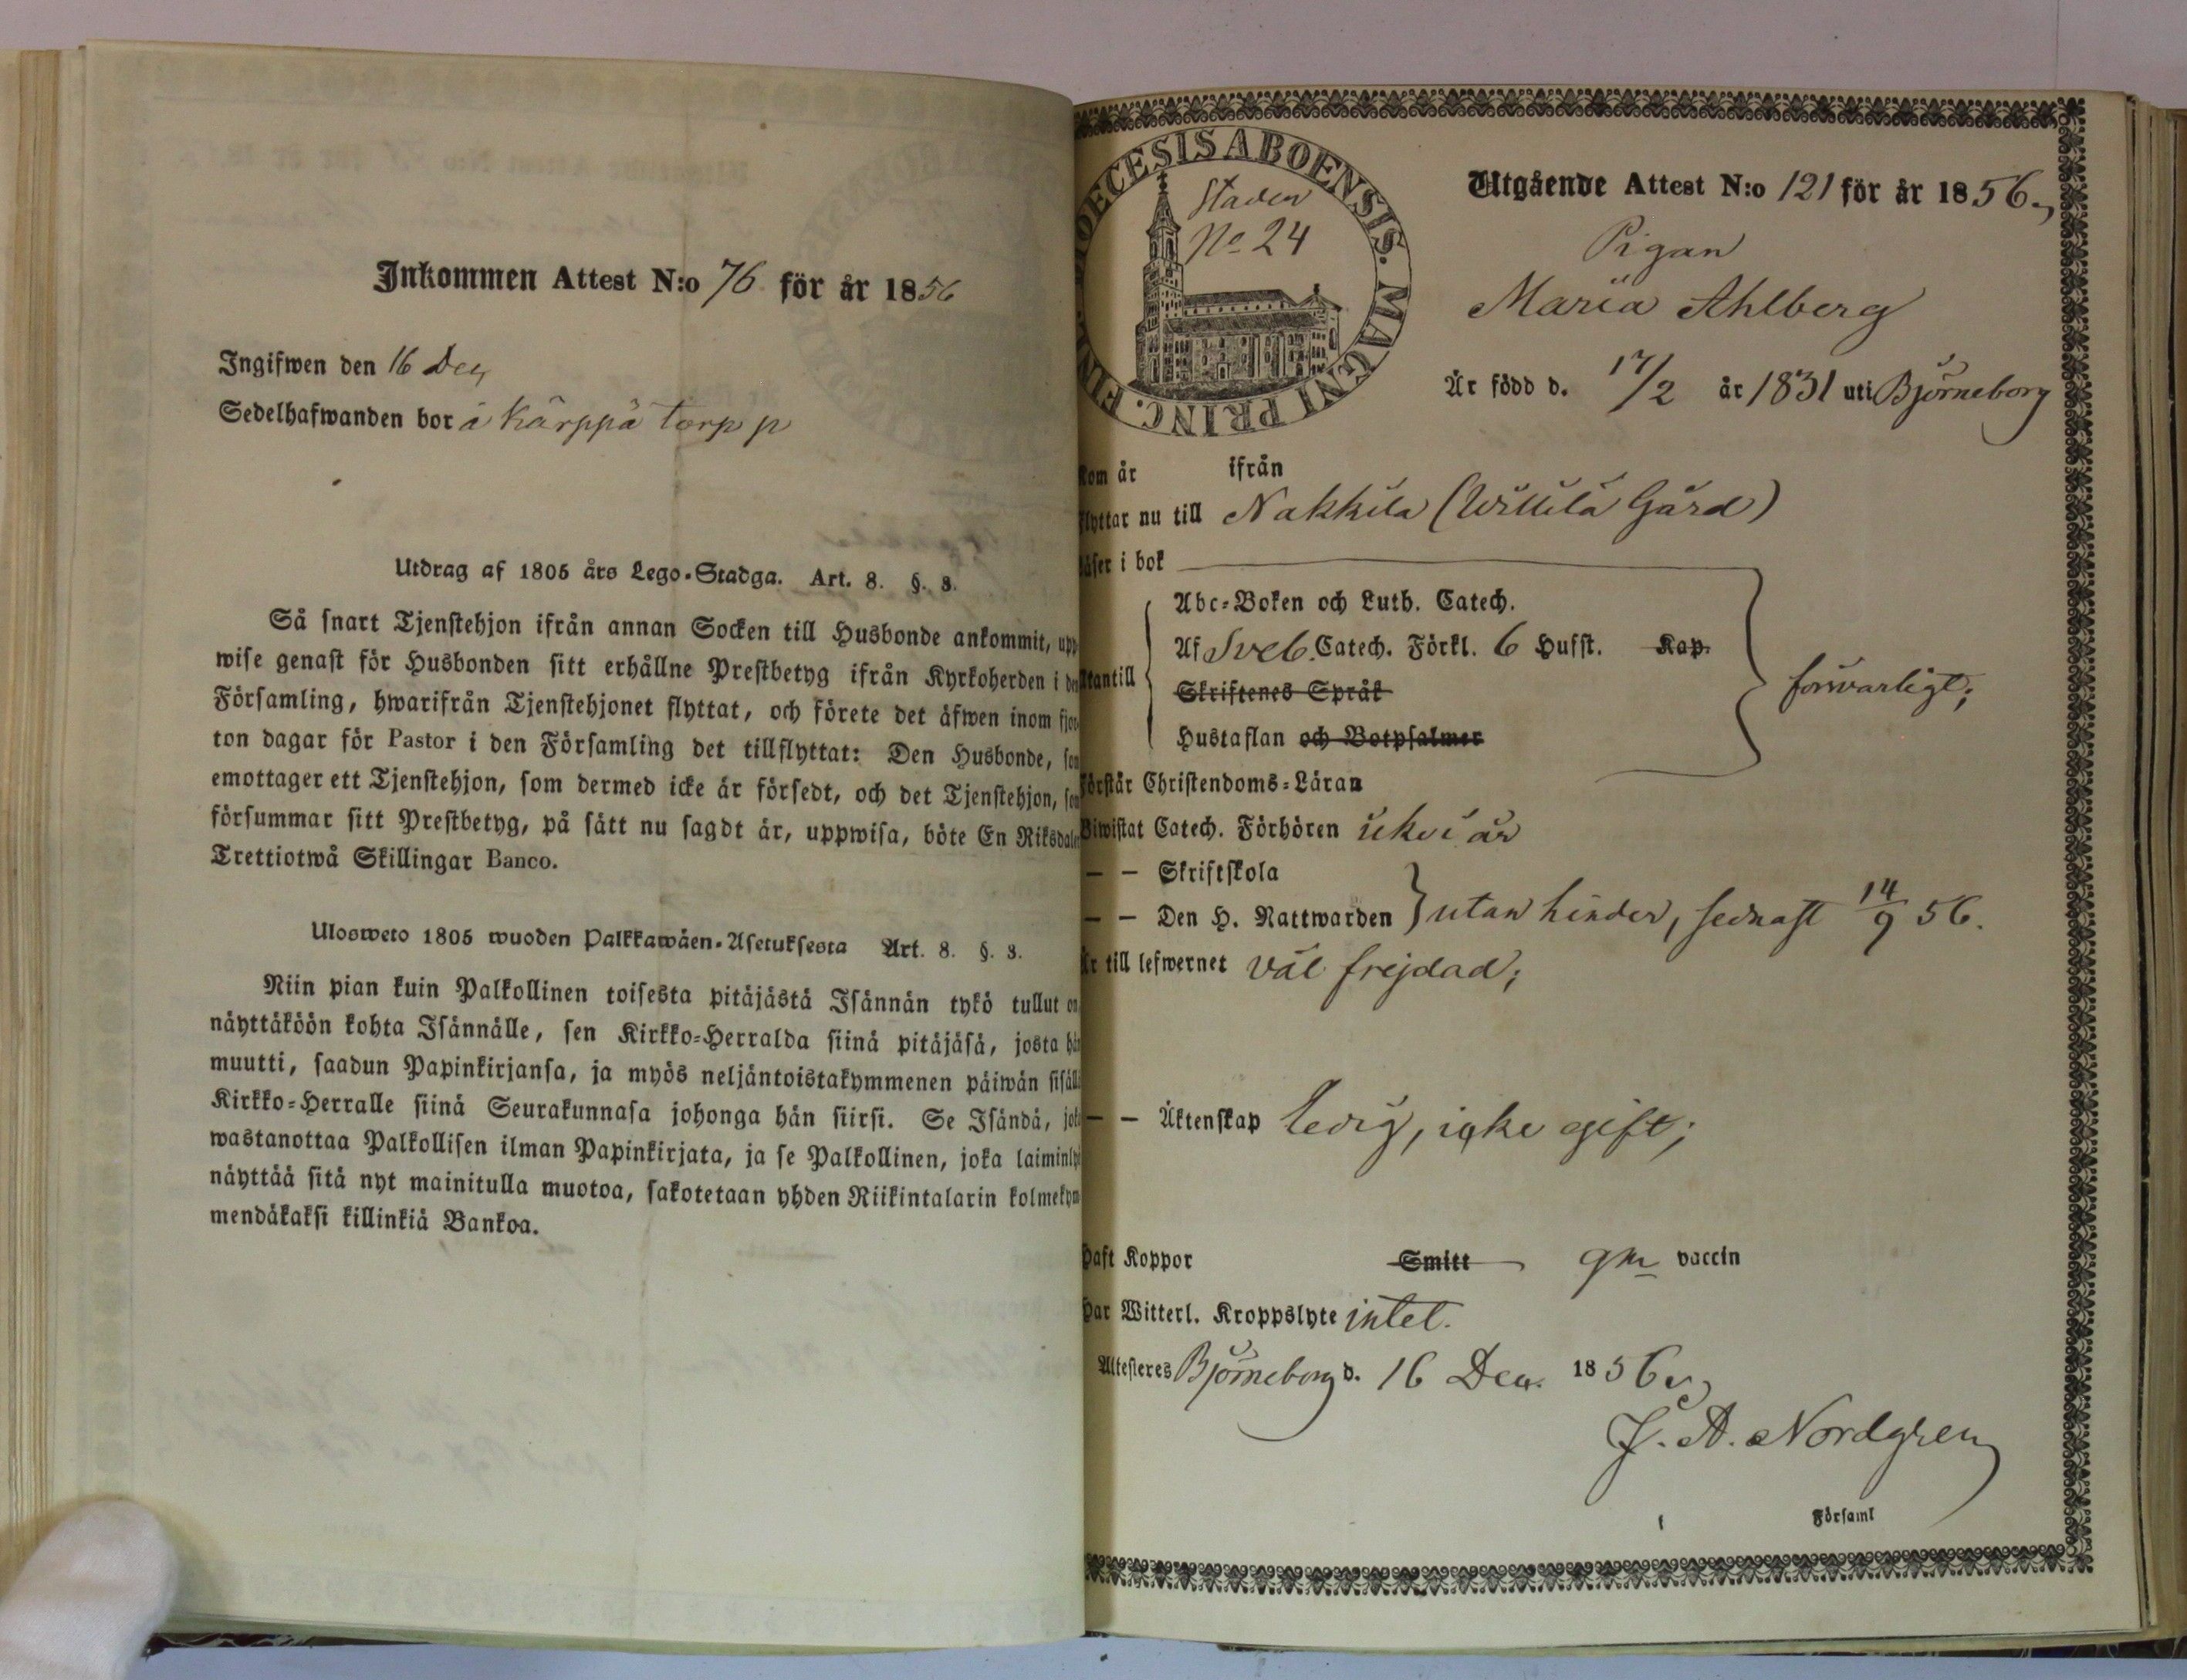 Inkommen Attest N:o 76 för år 1856
Ingifwen den 16 Dec
Sedelhafwanden bor å Kärppä torp p
Utdrag af 1805 års Lego-Stadga. Art. 8. §. 3.
Så snart Tjenstehjon ifrån annan Socken till Husbonde ankommit, upp
wise genast för Husbonden sitt erhållne Prestbetyg ifrån Kyrkoherden i den
Församling, hwarifrån Tjenstehjonet flyttat, och förete det äfwen inom fjor
ton dagar för Pastor i den Församling det tillflyttat: Den Husbonde, som
emottager ett Tjenstehjon, som dermed icke är försedt, och det Tjenstehjon, som
försummar sitt Prestbetyg, på sätt nu sagdt är, uppwisa, böte En Riksdaler
Trettiotwå Skillingar Banco.
Ulosweto 1805 wuoden Palkkawäen-Asetuksesta Art. 8. §. 3.
Niin pian kuin Palkollinen toisesta pitäjästä Isännän tykö tullut on
näyttäköön kohta Isännälle, sen Kirkko-Herralda siinä pitäjäsä, josta hän
muutti, saadun Papinkirjansa, ja myös neljäntoistakymmenen päiwän sisällä
Kirkko-Herralle siinä Seurakunnasa johonga hän siirsi. Se Isändä, joka
wastanottaa Palkollisen ilman Papinkirjata, ja se Palkollinen, joka laiminlyö
näyttää sitä nyt mainitulla muotoa, sakotetaan yhden Riikintalarin kolmekym
mendäkaksi killinkiä Bankoa.
DIOECESIS ABOENSIS. MAGNI PRINC. FINL.
Staden
No 24
Utgående Attest N:o 121 för år 1856.
Pigan
Maria Ahlberg
Är född d. 17/2 år 1831 uti Björneborg
Kom år ifrån
Flyttar nu till Nakkila (Willilä Gård)
Läser i bok
Abc-Boken och Luth. Catech.
Utantill Af Sveb. Catech. Förkl. 6 Hufst. Kap. försvarligt;
Skriftenes Språk
Hustaflan och Botpsalmer
Förstår Christendoms-Läran
Biwistat Catech. Förhören i år
— — Skriftskola
— — Den H. Nattwarden } utan hinder, sednast 14/9 56.
Är till lefwernet väl frejdad;
— — Äktenskap ledig, icke gift;
Haft Koppor Smitt gm vaccin
Har Witterl. Kroppslyte intet.
Attesteres Björneborg d. 16 Dec. 1856.
J. A. Nordgren
Församl